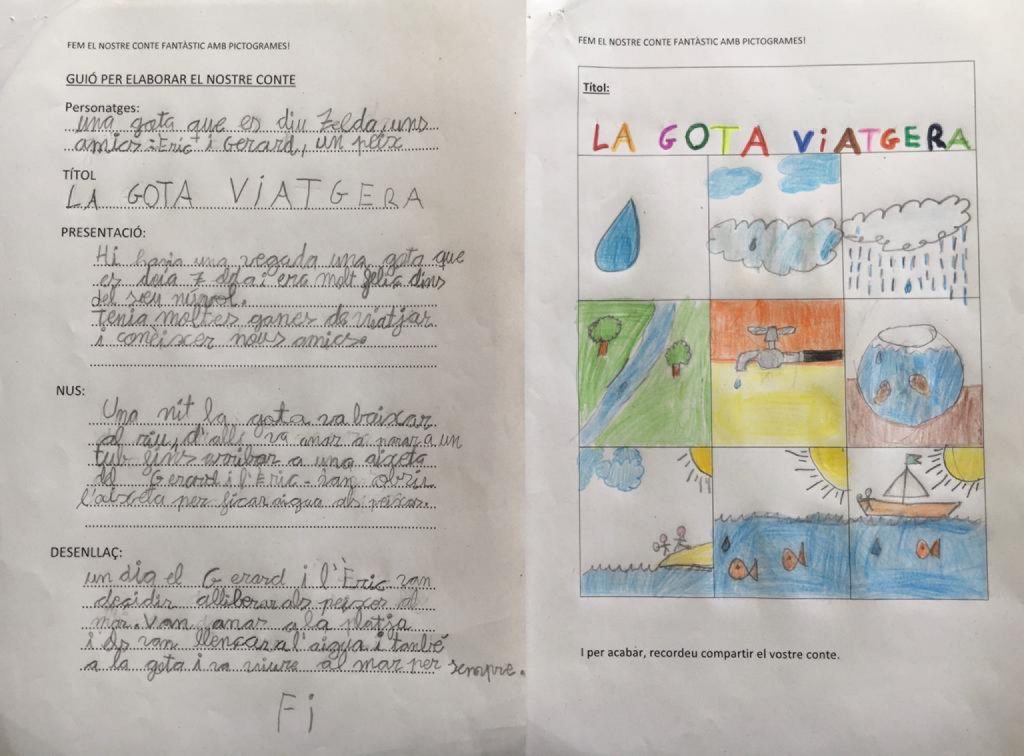 FEM EL NOSTRE CONTE FANTÀSTIC AMB PICTOGRAMES!
GUIÓ PER ELABORAR EL NOSTRE CONTE
Personatges:
una gota que es diu Zelda, uns
amics: Eric i Gerard, un peix
TÍTOL
LA GOTA VIATGERA
PRESENTACIÓ:
Hi havia una vegada una gota que
es deia Zelda i era molt feliç dins
del seu núvol.
Tenia moltes ganes de viatjar
i conèixer nous amics.
NUS:
Una nit la gota va baixar
al riu, d'allí va anar a parar a un
tub fins arribar a una aixeta
del Gerard i l'Eric van obrir
l'aixeta per ficar aigua als peixos.
DESENLLAÇ:
un dia el Gerard i l'Èric van
decidir alliberar als peixos al
mar. Van anar a la platja
i els van llençar a l'aigua i també
a la gota i va viure al mar per sempre.
Fi
FEM EL NOSTRE CONTE FANTÀSTIC AMB PICTOGRAMES!
Títol:
LA GOTA ViATGERA
I per acabar, recordeu compartir el vostre conte.